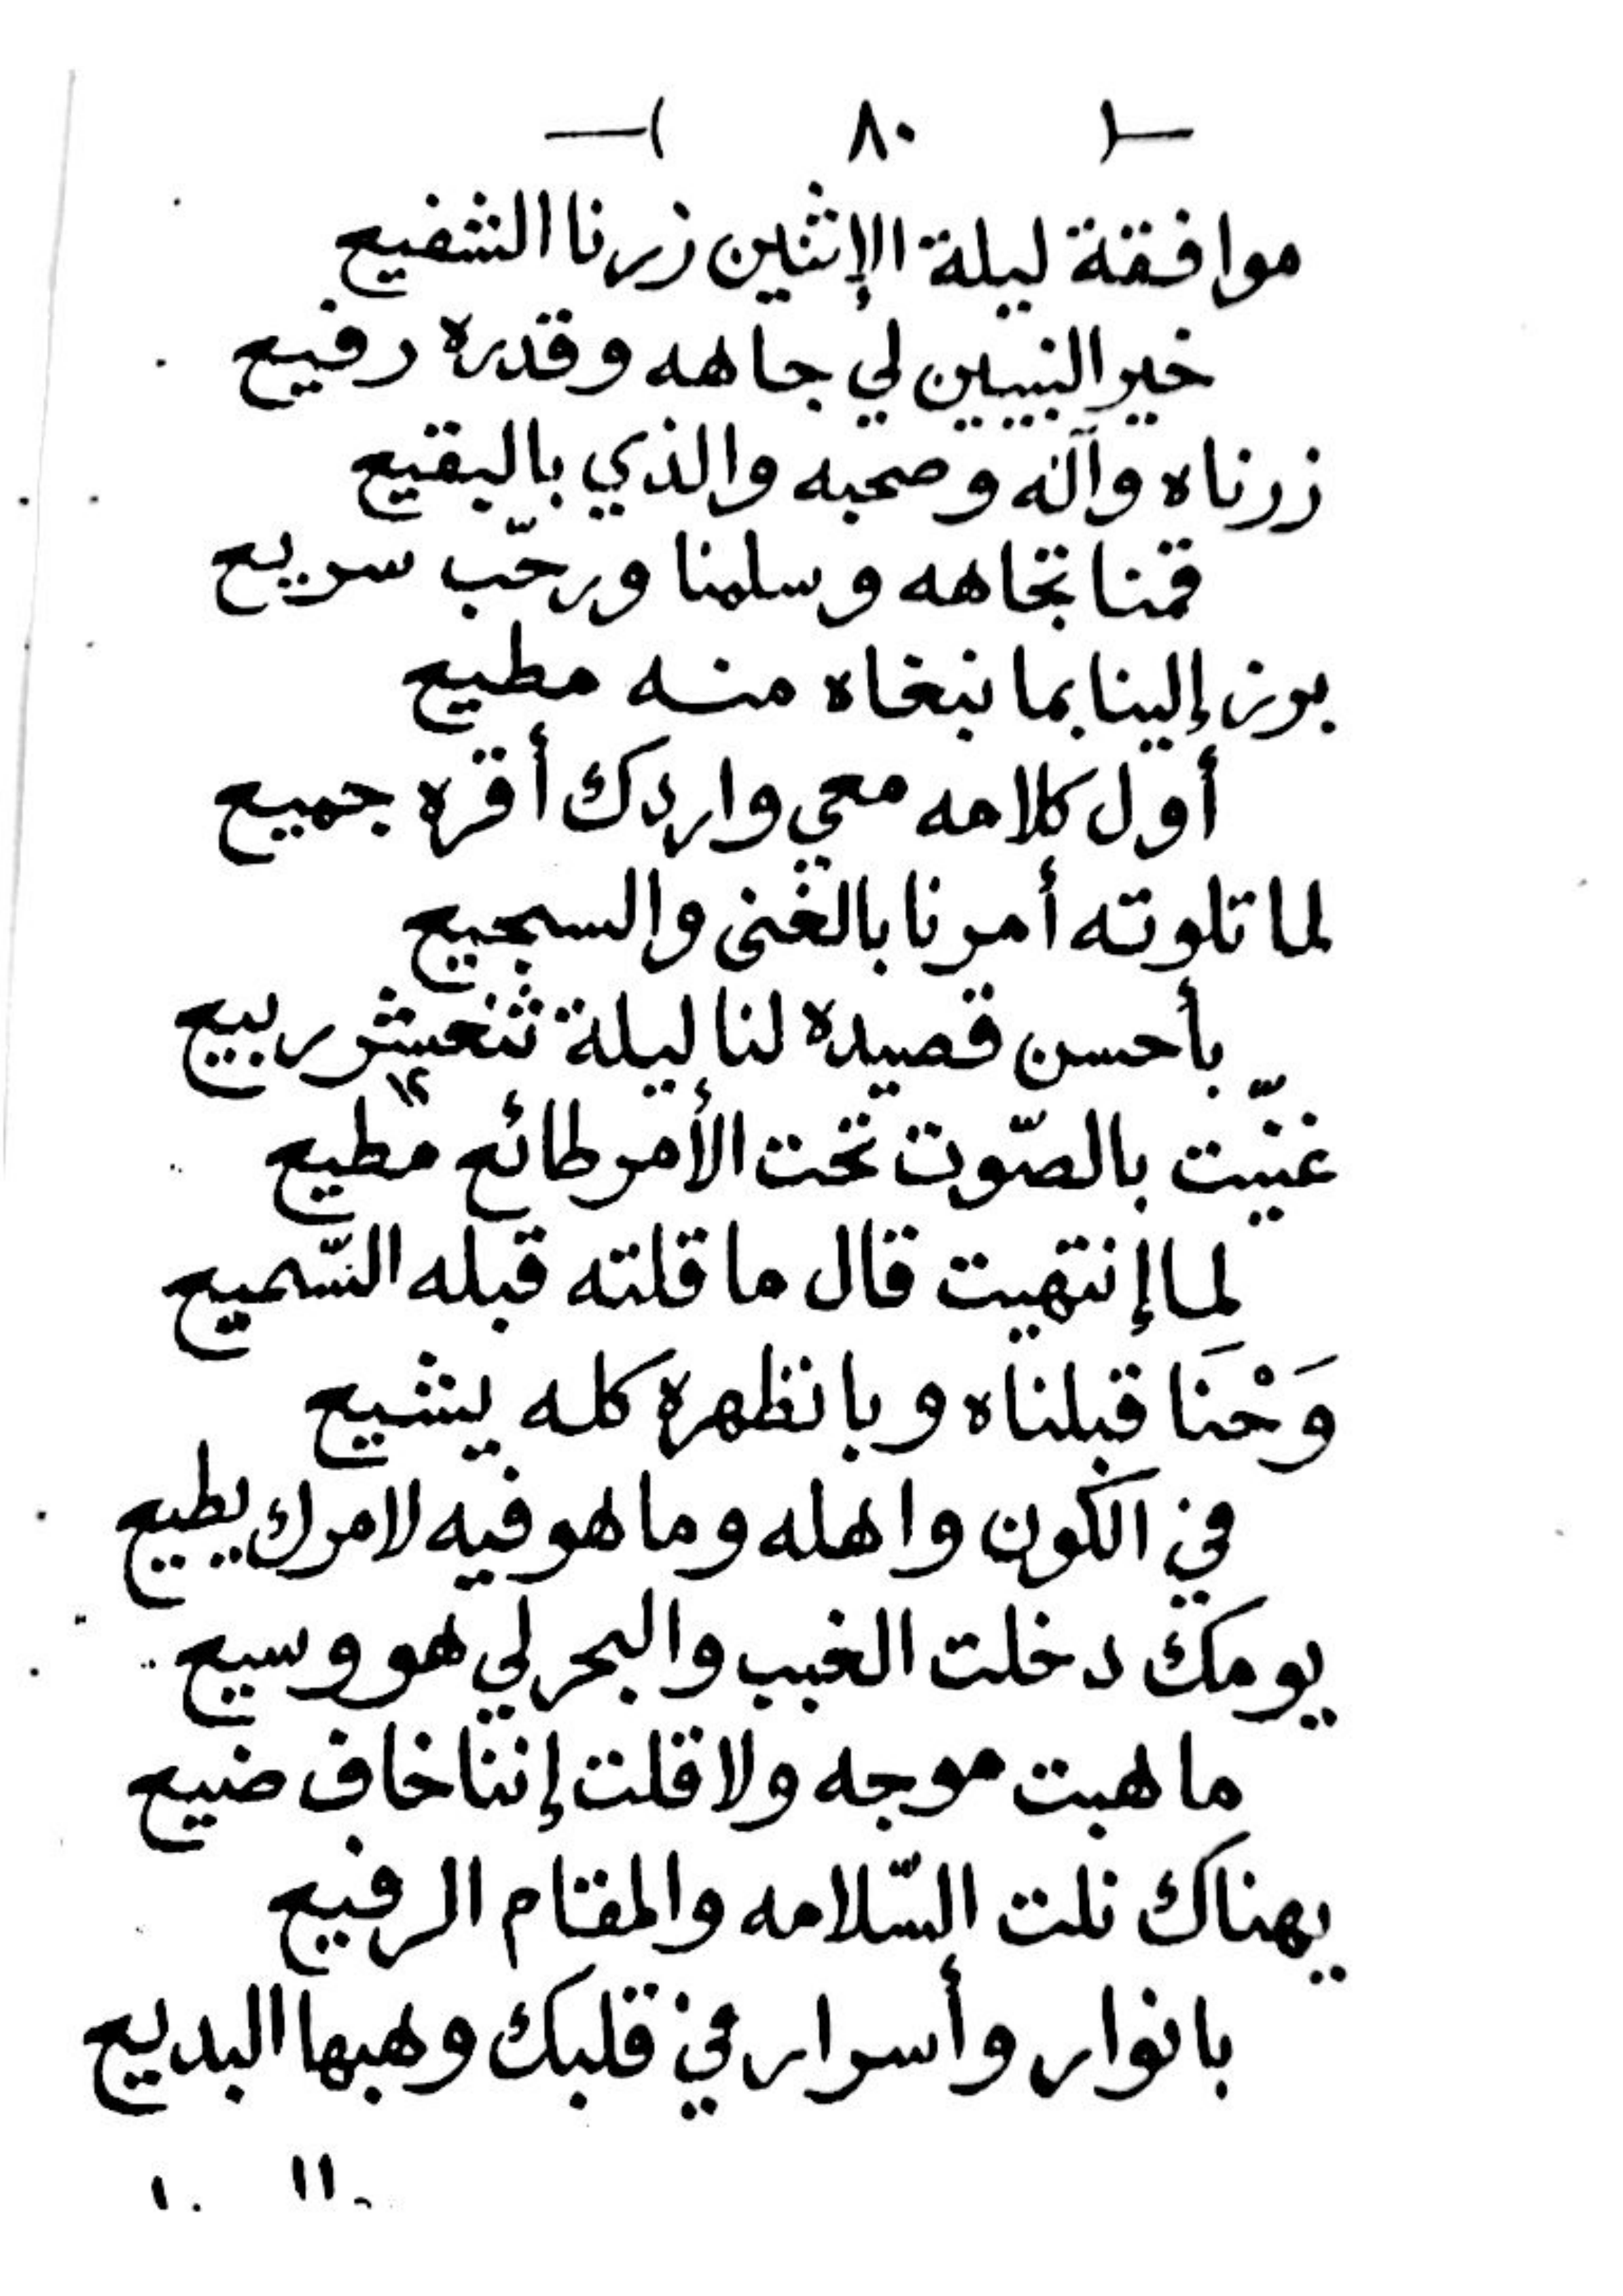 —( ٨٠ )—
موافقة ليلة الإثنين زرنا الشفيع
خير النبيين لي جاهه وقدره رفيع
زرناه وآله وصحبه والذي بالبقيع
قمنا تجاهه وسلمنا ورحّب سريع
برز إلينا بما نبغاه منه مطيع
أول كلامه معي واردك أقره جميع
لما تلوته أمرنا بالغنى والسجيع
بأحسن قصيده لنا ليلة ثنعشر ربيع
١٢
غنّيت بالصّوت تحت الأمر طائع مطيع
لما إنتهيت قال ما قلته قبله السّميع
وَحْنَا قبلناه وبانظهره كله يشيع
في الكون واهله وما هو فيه لامرك يطيع
يومك دخلت الغبب والبحر لي هو وسيع
ما هبت موجه ولا قلت إننا خاف ضيع
يهناك نلت السّلامه والمقام الرفيع
بانوار وأسرار في قلبك وهبها البديع